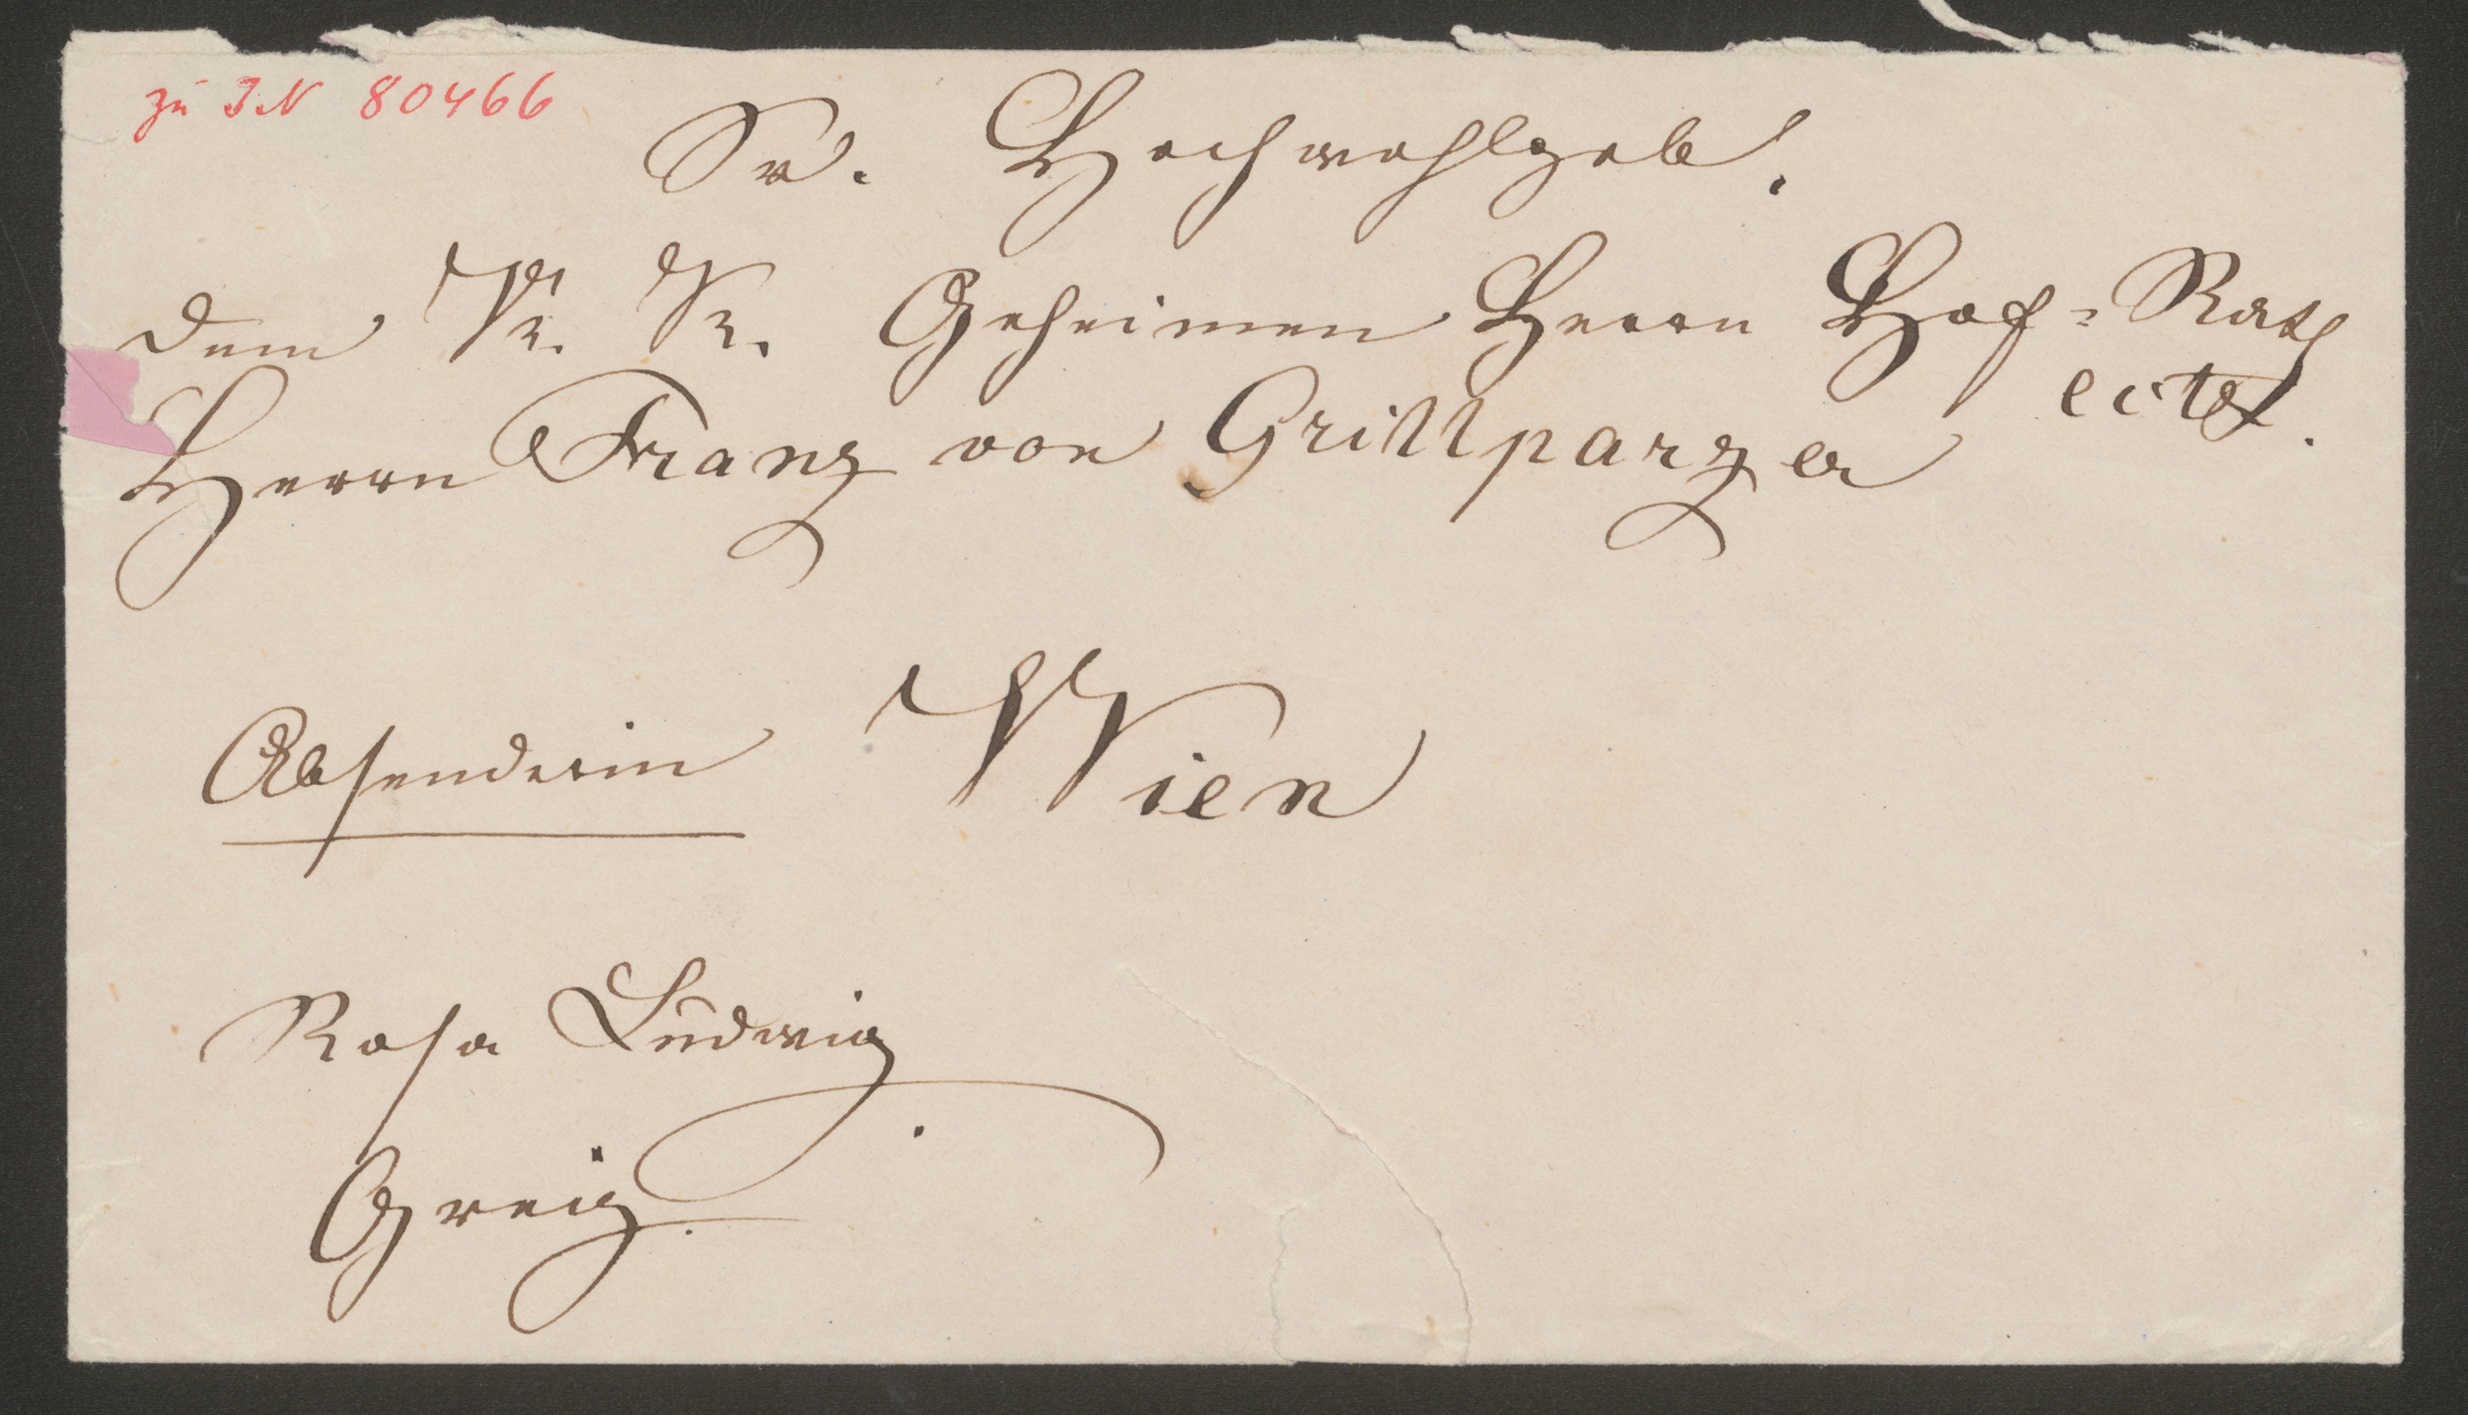 zu IN 80466
Sr. Hochwohlgeb.
dem K. K. Geheimen Herrn Hof-Rath
Herrn Franz von Grillparzer
Absenderin Wien
Rosa Ludwig
Greiz.